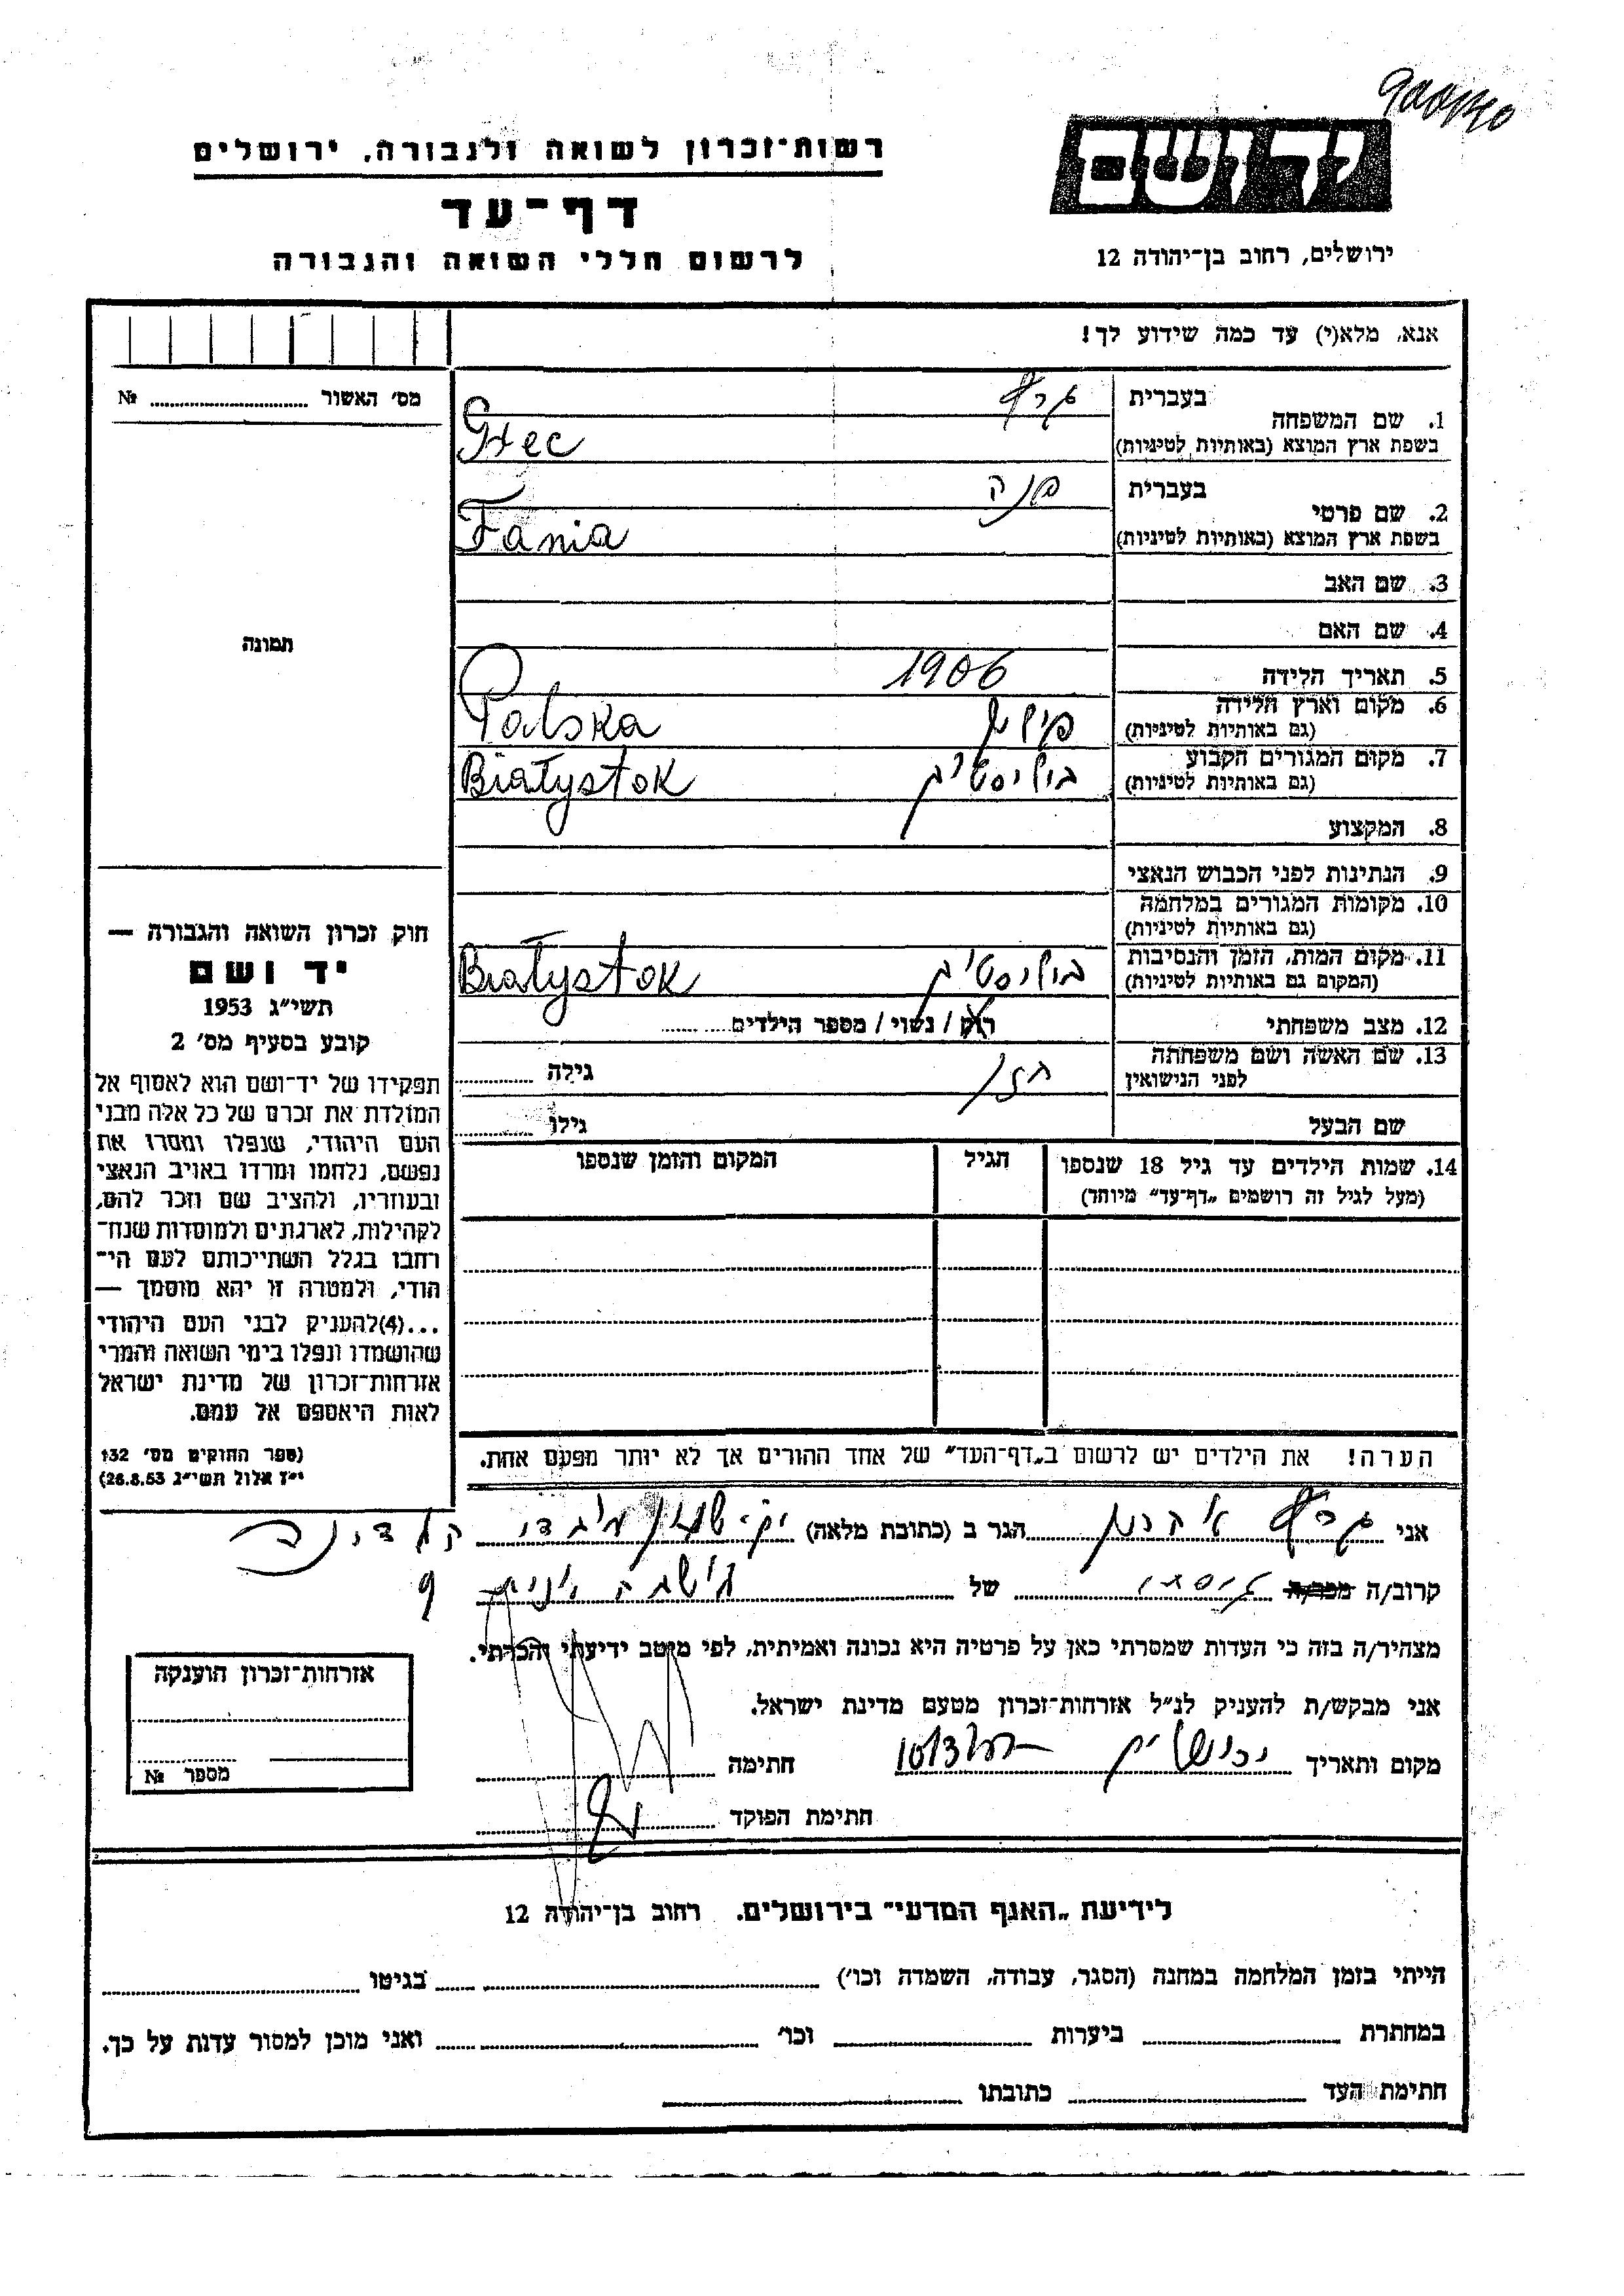 רשות־זכרון לשואה ולגבורה, ירושלים
דף־עד
לרשום חללי השואה והגבורה
יד ושם
ירושלים, רחוב בן־יהודה 12
אנא, מלא(י) עד כמה שידוע לך!
מס׳ האשור № 
1. שם המשפחה בעברית
בשפת ארץ המוצא (באותיות לטיניות) Grec
2. שם פרטי בעברית פניה
בשפת ארץ המוצא (באותיות לטיניות) Fania
3. שם האב
4. שם האם
5. תאריך הלידה 1906
6. מקום וארץ הלידה
(גם באותיות לטיניות) פולין Polska
7. מקום המגורים הקבוע
(גם באותיות לטיניות) ביליסטוק Białystok
8. המקצוע
9. הנתינות לפני הכבוש הנאצי
10. מקומות המגורים במלחמה
(גם באותיות לטיניות)
11. מקום המות, הזמן והנסיבות
(המקום גם באותיות לטיניות) ביליסטוק Białystok
12. מצב משפחתי רוק / נשוי / מספר הילדים
13. שם האשה ושם משפחתה
לפני הנישואין גילה
שם הבעל גילו
14. שמות הילדים עד גיל 18 שנספו
(מעל לגיל זה רושמים „דף־עד״ מיוחד)
הגיל
המקום והזמן שנספו
הערה! את הילדים יש לרשום ב„דף־העד״ של אחד ההורים אך לא יותר מפעם אחת.
תמונה
חוק זכרון השואה והגבורה —
יד ושם
תשי״ג 1953
קובע בסעיף מס׳ 2
תפקידו של יד־ושם הוא לאסוף אל
המולדת את זכרם של כל אלה מבני
העם היהודי, שנפלו ומסרו את
נפשם, נלחמו ומרדו באויב הנאצי
ובעוזריו, ולהציב שם וזכר להם,
לקהילות, לארגונים ולמוסדות שנח־
רבו בגלל השתייכותם לעם הי־
הודי, ולמטרה זו יהא מוסמך —
...(4)להעניק לבני העם היהודי
שהושמדו ונפלו בימי השואה והמרי
אזרחות־זכרון של מדינת ישראל
לאות היאספם אל עמם.
(ספר החוקים מס׳ 132
י״ז אלול תשי״ג 26.8.53)
אני הגר ב (כתובת מלאה)
קרוב/ה מכר/ה של
מצהיר/ה בזה כי העדות שמסרתי כאן על פרטיה היא נכונה ואמיתית, לפי מיטב ידיעתי והכרתי.
אני מבקש/ת להעניק לנ״ל אזרחות־זכרון מטעם מדינת ישראל.
מקום ותאריך ירושלים חתימה
חתימת הפוקד
אזרחות־זכרון הוענקה
מספר №
לידיעת „האגף המדעי״ בירושלים. רחוב בן־יהודה 12
הייתי בזמן המלחמה במחנה (הסגר, עבודה, השמדה וכו׳) בגיטו
במחתרת ביערות וכו׳ ואני מוכן למסור עדות על כך.
חתימת העד כתובתו